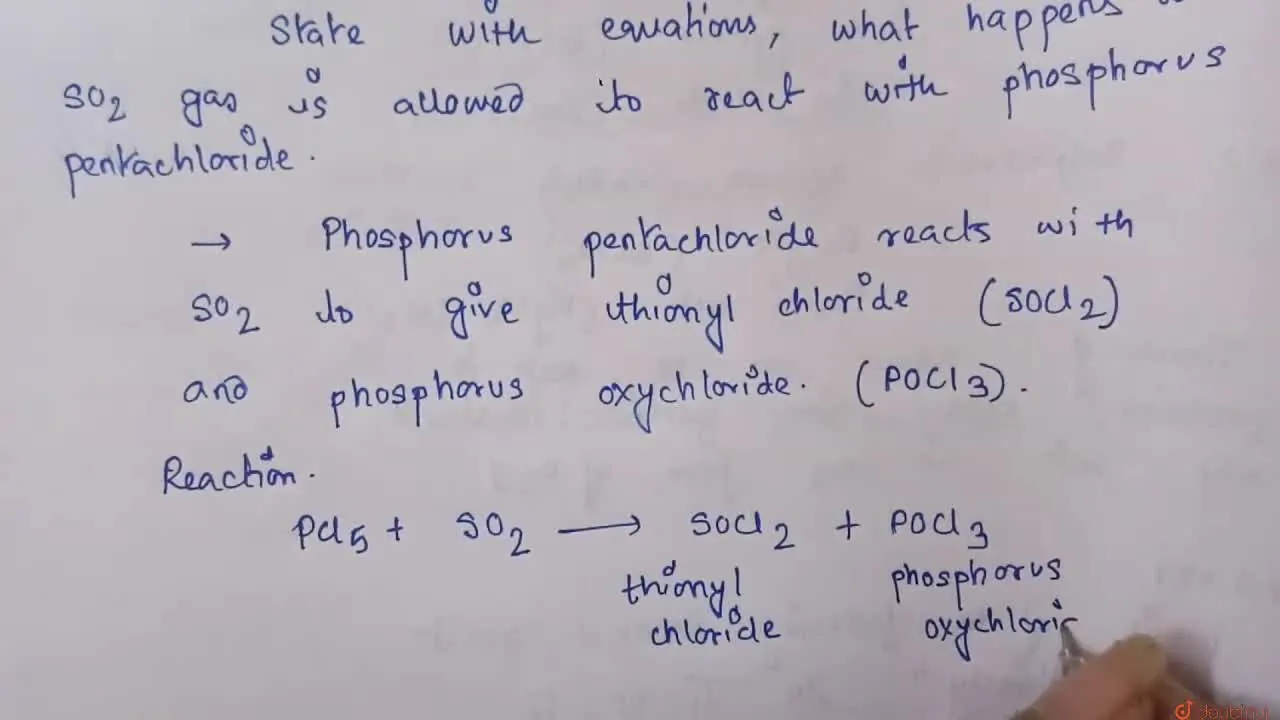 State with equations, what happens
SO2 gas is allowed to react with phosphorus
pentachloride.
→ Phosphorus pentachloride reacts with
SO2 to give thionyl chloride (SOCl2)
and phosphorus oxychloride. (POCl3).
Reaction.
PCl5 + SO2 ⟶ SOCl2 + POCl3
thionyl phosphorus
chloride oxychlori
doubtnut